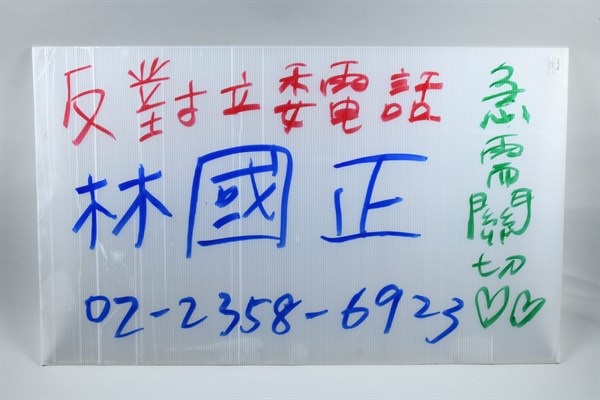 反對立委電話
林國正
02-2358-6923
急需關切♡♡